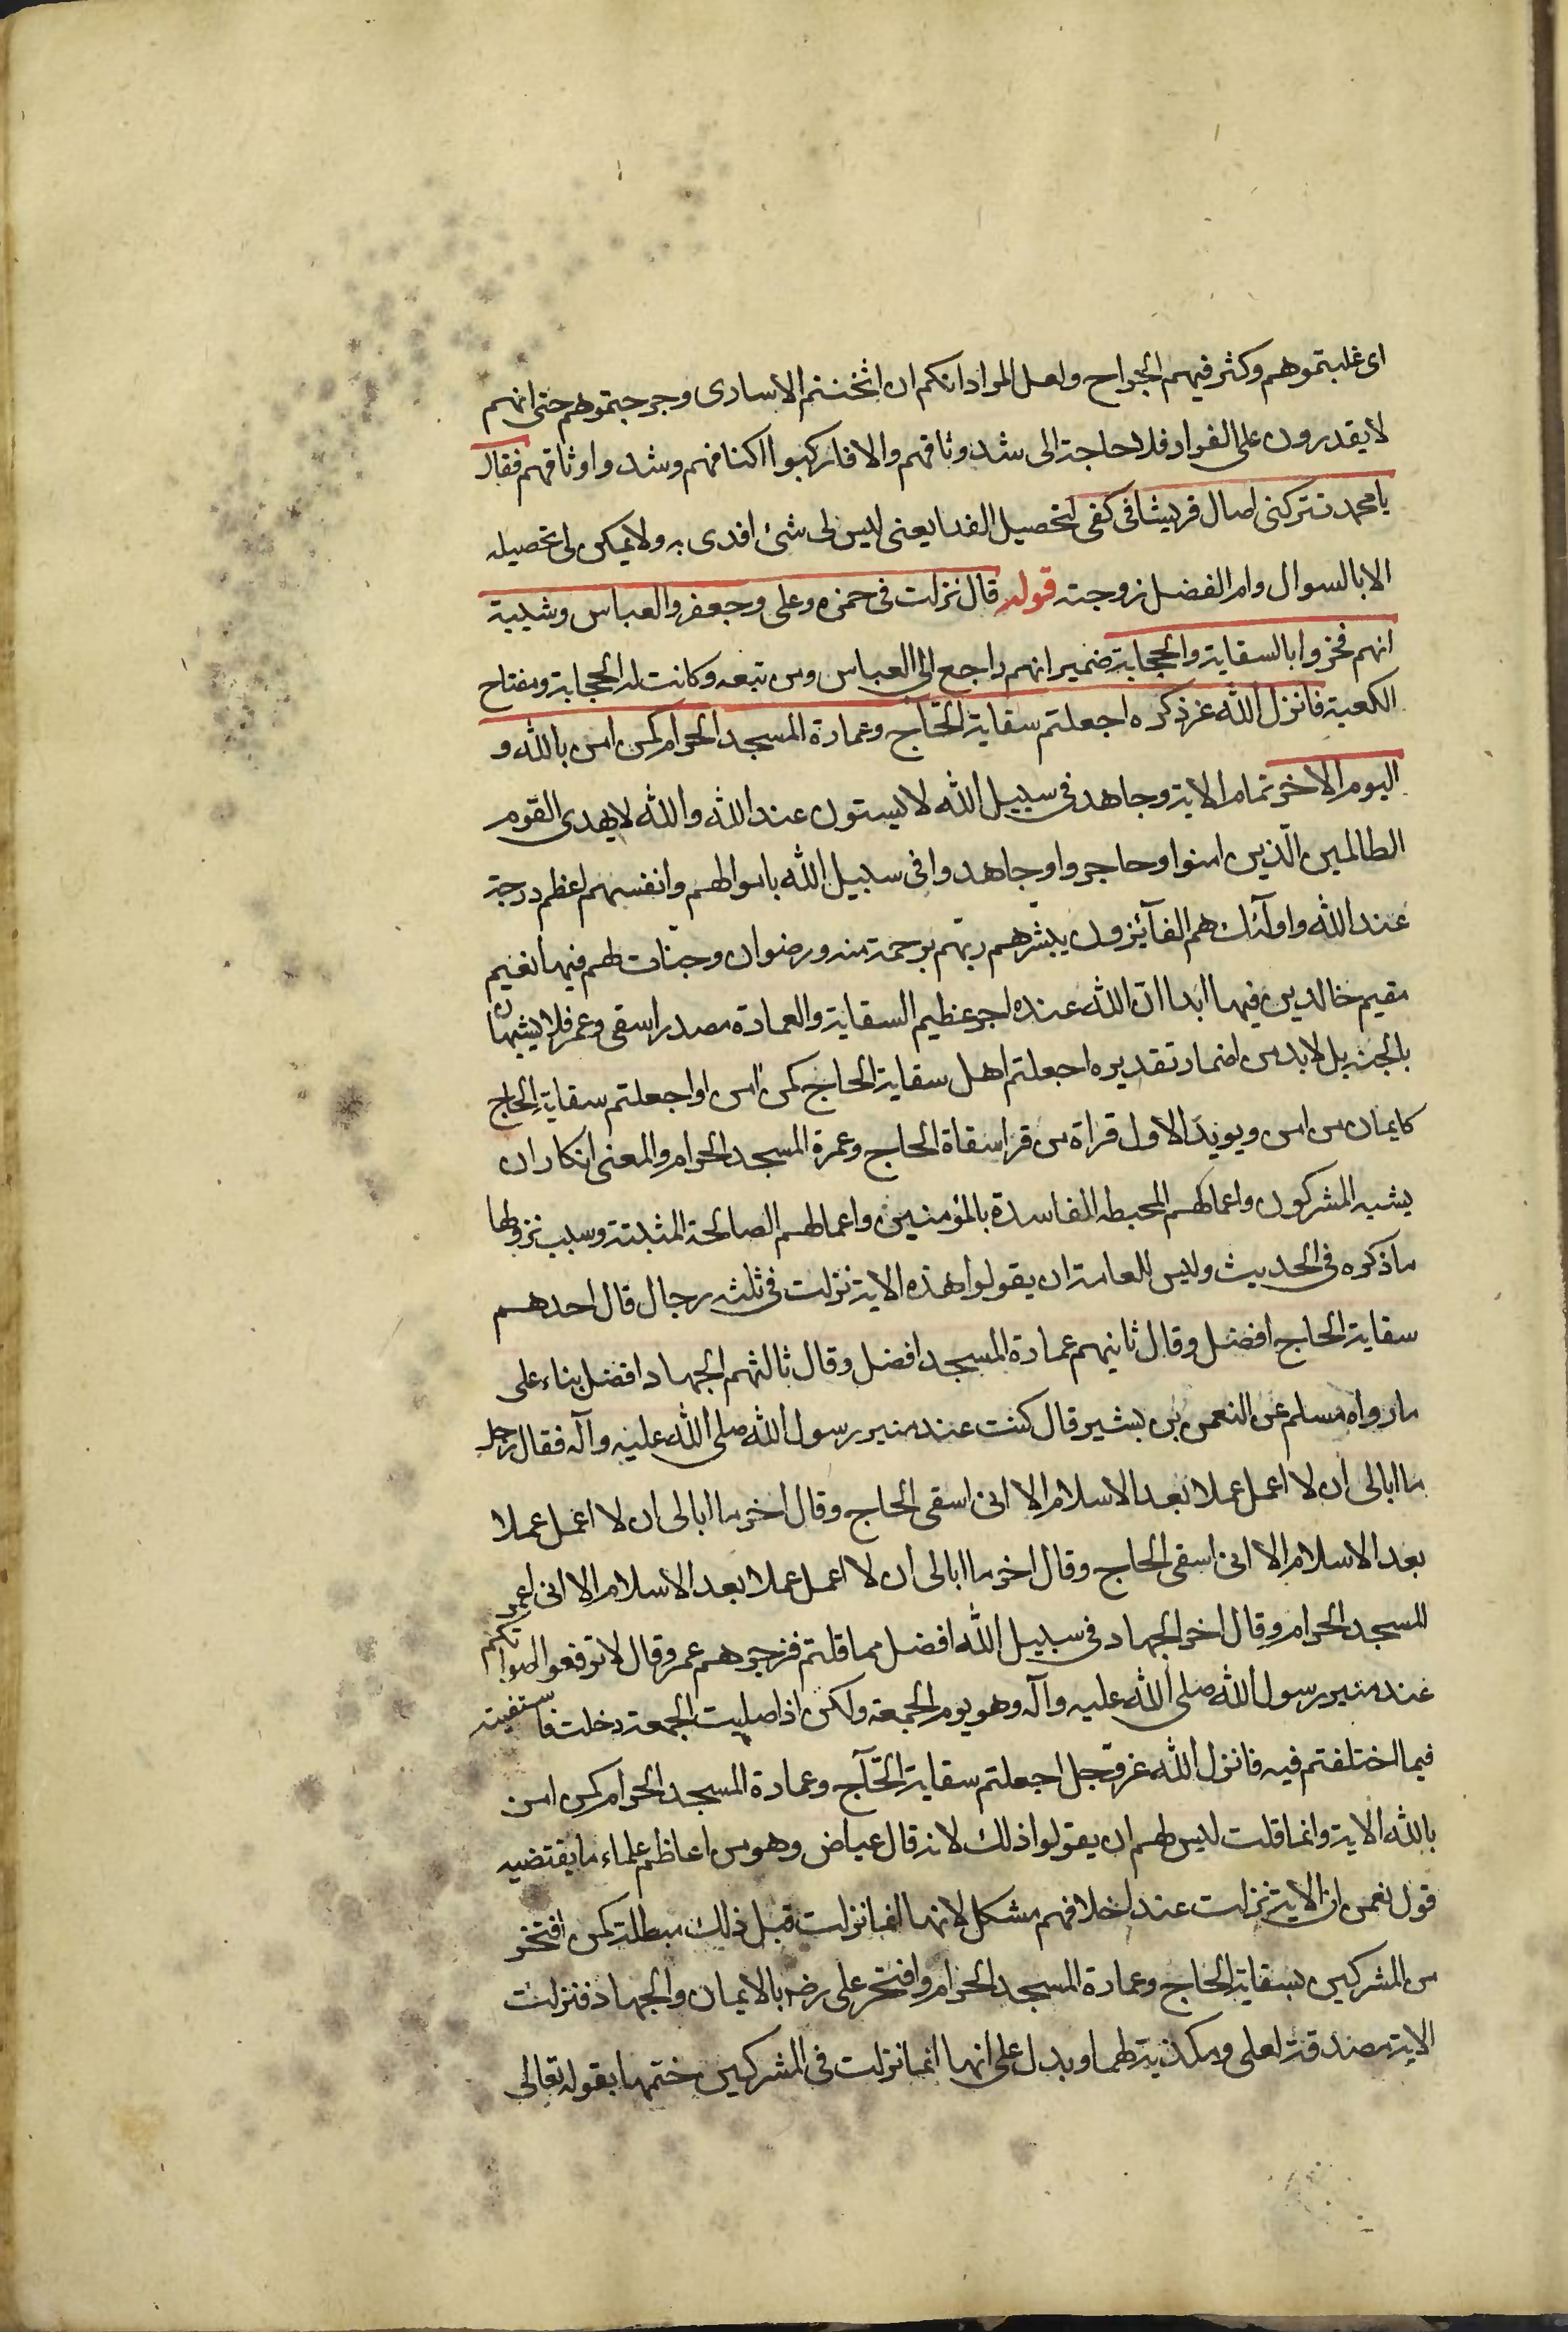 اى غلبتموهم وكثر فيهم الجراح ولعل المراد انكم ان اثخنتم الاسارى وجرحتموهم حتى انهم
لا يقدرون على الفرار فلا حاجة الى شد وثاقهم والا فاركبوا اكتافهم وشدوا وثاقهم فقال
يا محمد تتركنى اسال قريشا فى كفى لتحصيل الفدا يعنى ليس لى شئ افدى به ولا يمكن لى تحصيله
الا بالسوال وام الفضل زوجته قوله قال نزلت فى حمزه وعلى وجعفر والعباس وشيبة
انهم فخروا بالسقاية والحجابة ضمير انهم راجع الى العباس ومن تبعه وكانت له الحجابة ومفتاح
الكعبة فانزل الله عز ذكره اجعلتم سقاية الحاج وعمارة المسجد الحرام كمن امن بالله و
اليوم الاخر تمام الاية وجاهد فى سبيل الله لا يستون عند الله والله لا يهدى القوم
الظالمين الّذين امنوا وهاجروا وجاهدوا فى سبيل الله باموالهم وانفسهم اعظم درجة
عند الله واولئك هم الفآئزون يبشّرهم ربّهم برحمة منه ورضوان وجنّات لهم فيها نعيم
مقيم خالدين فيها ابدا انّ الله عنده اجر عظيم السقاية والعمارة مصدر اسقى وعمر فلا يشبهان
بالجثة بل لابد من اضمار تقديره اجعلتم اهل سقاية الحاج كمن امن او اجعلتم سقاية الحاج
كايمان من امن ويويد الاول قراة من قرا سقاة الحاج وعمرة المسجد الحرام والمعنى انكار ان
يشبه المشركون واعمالهم المحبطه الفاسدة بالمؤمنين واعمالهم الصالحة المثبتة وسبب نزولها
ما ذكره فى الحديث وليس للعامة ان يقولوا هذه الاية نزلت فى ثلثه رجال قال احدهم
سقاية الحاج افضل وقال ثانيهم عمارة المسجد افضل وقال ثالثهم الجهاد افضل بناء على
ما رواه مسلم عن النعمن بن بشير قال كنت عند منبر رسول الله صلى الله عليه وآله فقال رجل
ما ابالى ان لا اعمل عملا بعد الاسلام الا انى اسقى الحاج وقال اخر ما ابالى ان لا اعمل عملا
بعد الاسلام الا انى اسقى الحاج وقال اخر ما ابالى ان لا اعمل عملا بعد الاسلام الا انى اعمر
المسجد الحرام وقال اخر الجهاد فى سبيل الله افضل مما قلتم فزجرهم عمر وقال لا ترفعوا اصواتكم
عند منبر رسول الله صلى الله عليه وآله وهو يوم الجمعة ولكن اذا صليت الجمعة دخلت فاستفتيته
فيما اختلفتم فيه فانزل الله عزّ وجل اجعلتم سقاية الحآج وعمارة المسجد الحرام كمن امن
بالله الاية وانما قلت ليس لهم ان يقولوا ذلك لانه قال عياض وهو من اعاظم علماء ما يقتضيه
قول نعمن ان الاية نزلت عند اختلافهم مشكل لانها انما نزلت قبل ذلك مبطلة كمن افتخر
من المشركين بسقاية الحاج وعمارة المسجد الحرام وافتخر على رضه بالايمان والجهاد فنزلت
الاية مصدقة لعلى ومكذبة لهما ويدل على انها انما نزلت فى المشركين ختمها بقوله تعالى